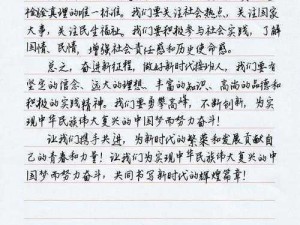 检验真理的唯一标准。我们要关注社会热点，关注国家
大事，关注民生福祉。我们要积极参与社会实践，了解
国情、民情，增强社会责任感和历史使命感。
总之，奋进新征程，做好新时代接班人，我们要有
坚定的信念、远大的理想、丰富的知识、高尚的品德和
积极的实践精神。我们要勇攀高峰，不断创新，为实
现中华民族伟大复兴的中国梦而努力奋斗。
让我们携手共进，为新时代的繁荣和发展贡献自
己的青春和力量！让我们为实现中华民族伟大复兴的
中国梦而努力奋斗，共同书写新时代的辉煌篇章！